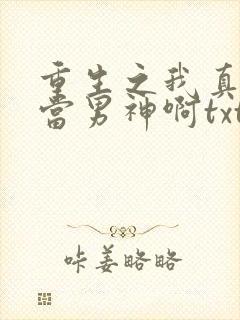 重生之我真
当男神啊txt
咔姜略略